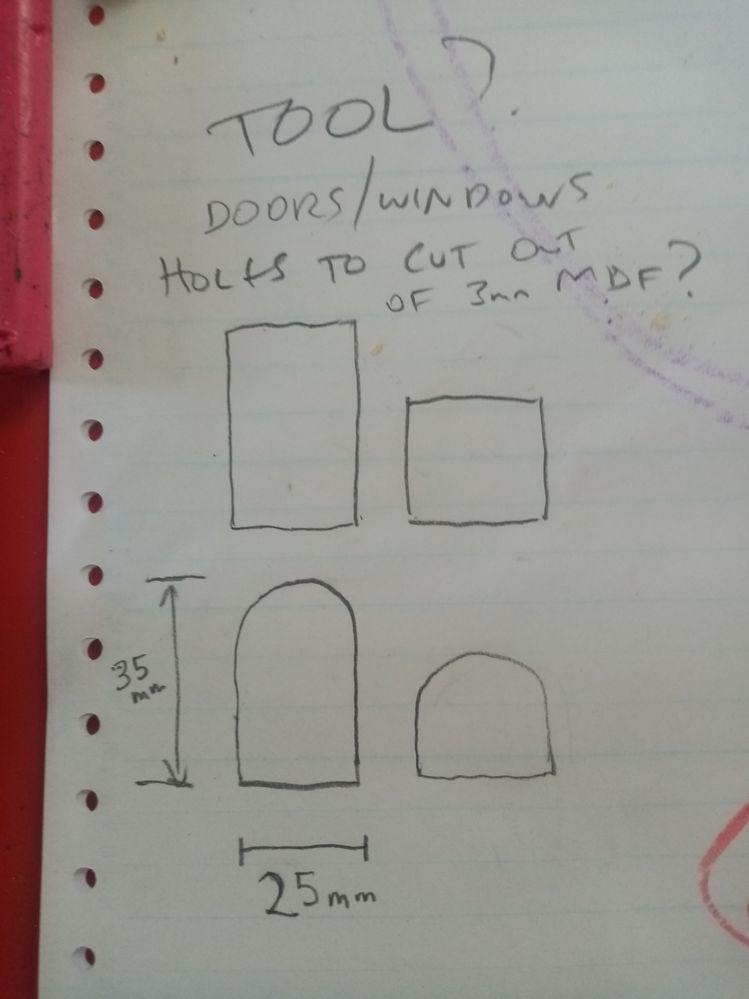 TOOL?
DOORS/WINDOWS
HOLES TO CUT OUT
OF 3mm MDF?
35
mm
25mm